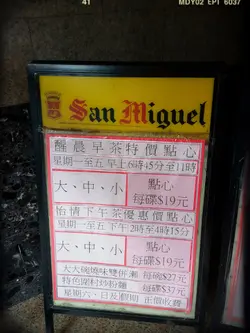 41
MDY02 EPT 6037
San Miguel
醒晨早茶特價點心
星期一至五早上6時45分至11時
大、中、小 點心 每碟$19元
怡情下午茶優惠價點心
星期一至五下午2時至4時15分
大、中、小 點心 每碟$19元
大大碗燒味雙併瀨 每碗$27元
特色籮籽炒粉麵 每碟$37元
星期六、日及假期 正價收費